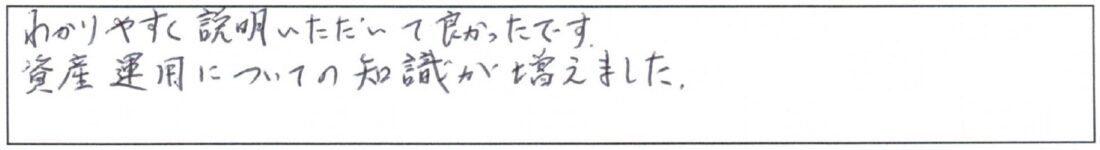 わかりやすく説明いただいて良かったです.
資産運用についての知識が増えました.